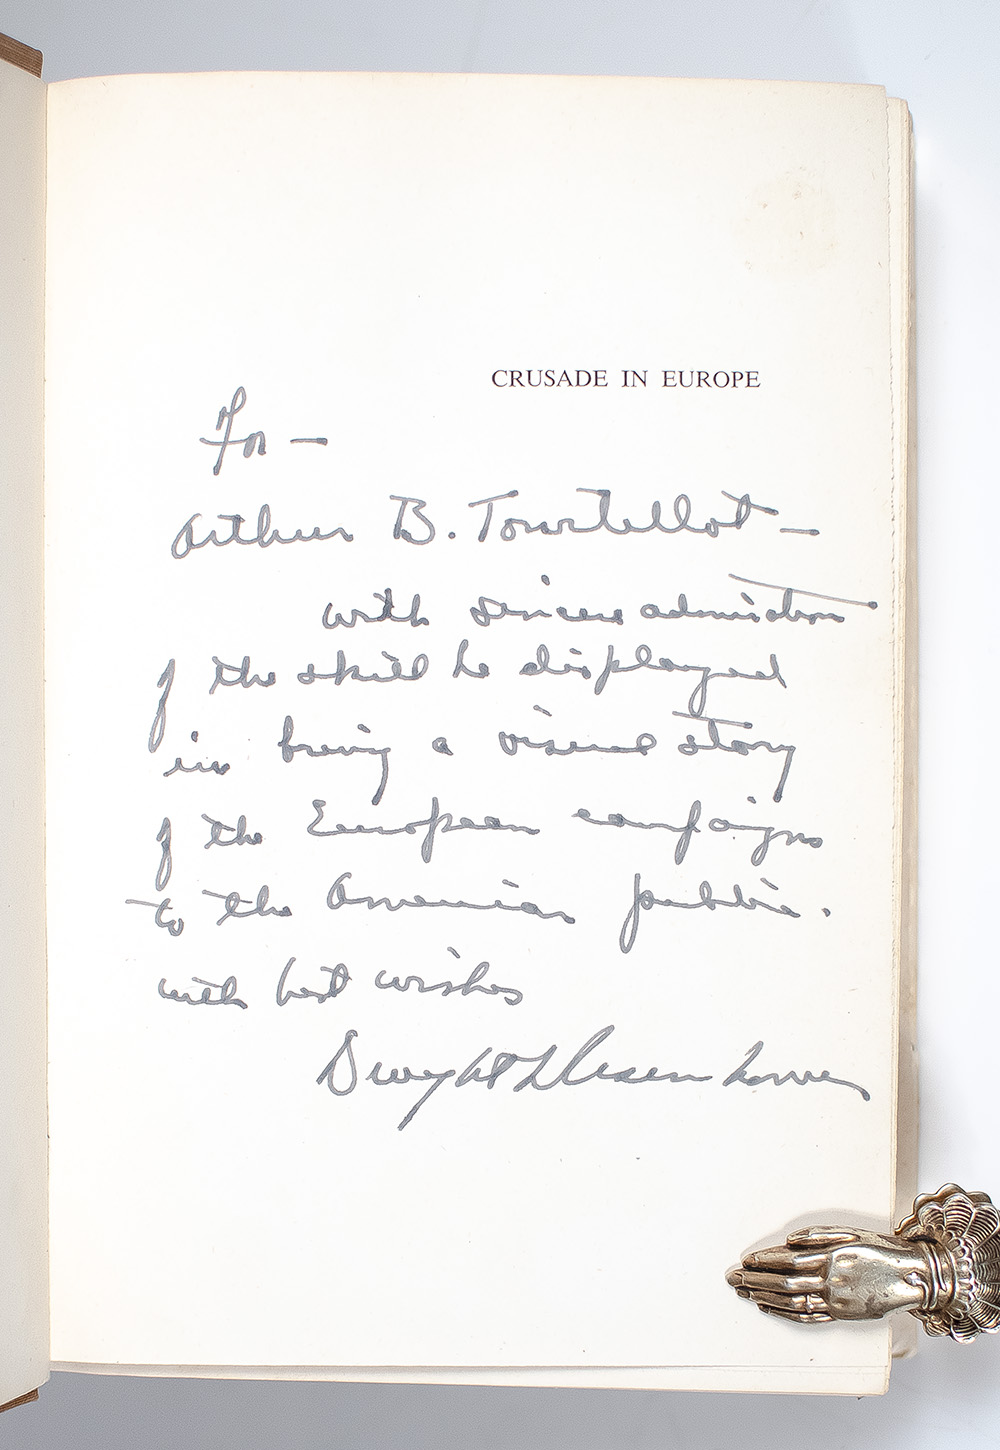 CRUSADE IN EUROPE
For —
Arthur B. Tourtellot —
with sincere admiration
of the skill he displayed
in bring a visual story
of the European campaigns
to the American public.
with best wishes
Dwight D Eisenhower